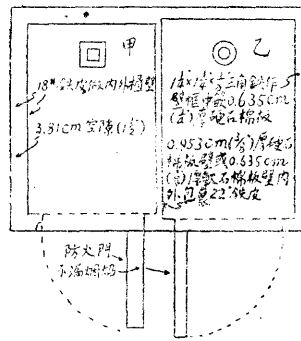 甲
18#鉄皮做内外桶壁
3.81cm空隙(1½")
乙
三角鉄作
壁框中嵌0.635cm
(¼")厚硬石棉板
0.953cm(⅜")厚硬石
棉板壁或0.635cm
(¼")厚軟石棉板壁内
外包裹22#鉄皮
防火門
不漏烟焰